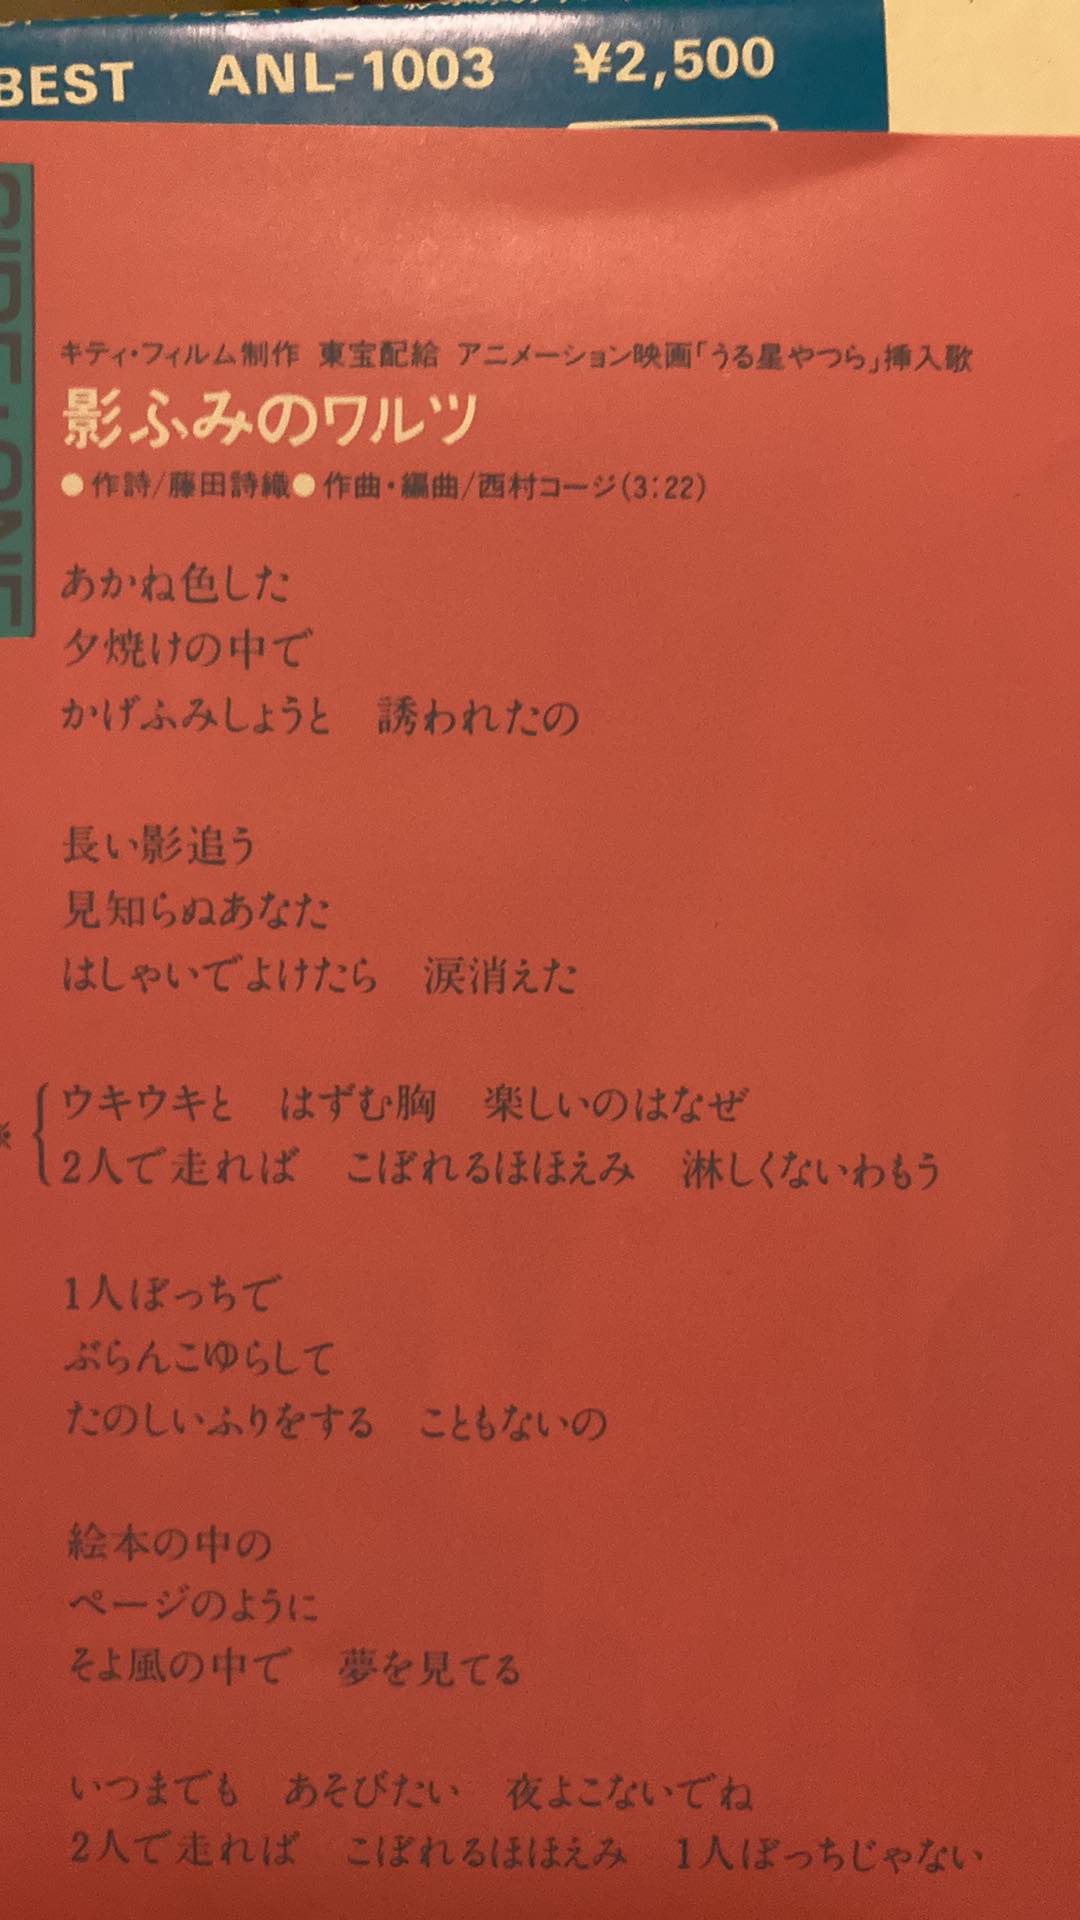 BEST ANL-1003 ¥2,500
SIDE・ONE
キティ・フィルム制作 東宝配給 アニメーション映画「うる星やつら」挿入歌
影ふみのワルツ
●作詩/藤田詩織●作曲・編曲/西村コージ(3:22)
あかね色した
夕焼けの中で
かげふみしょうと 誘われたの
長い影追う
見知らぬあなた
はしゃいでよけたら 涙消えた
※ウキウキと はずむ胸 楽しいのはなぜ
2人で走れば こぼれるほほえみ 淋しくないわもう
1人ぼっちで
ぶらんこゆらして
たのしいふりをする こともないの
絵本の中の
ページのように
そよ風の中で 夢を見てる
いつまでも あそびたい 夜よこないでね
2人で走れば こぼれるほほえみ 1人ぼっちじゃない